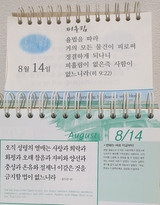 피흘림
율법을 따라
거의 모든 물건이 피로써
정결하게 되나니
피흘림이 없은즉 사함이
없느니라(히 9:22)
8월 14일
August
8/14
오직 성령의 열매는 사랑과 희락과
화평과 오래 참음과 자비와 양선과
충성과 온유와 절제니 이같은 것을
금지할 법이 없느니라